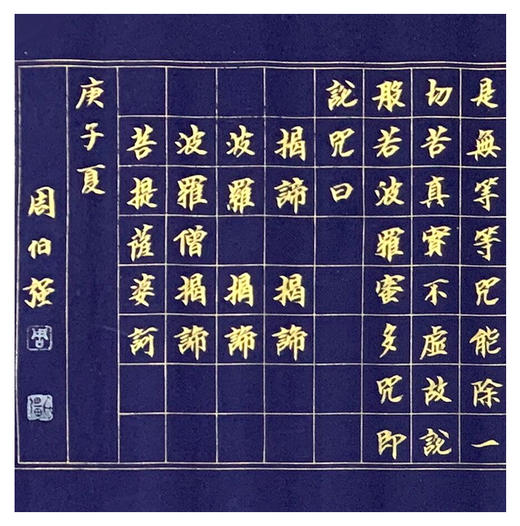 是無等等咒能除一
切苦真實不虛故說
般若波羅蜜多咒即
說咒曰
揭諦 揭諦
波羅 揭諦
波羅僧揭諦
菩提薩婆訶
庚子夏
周伯
周